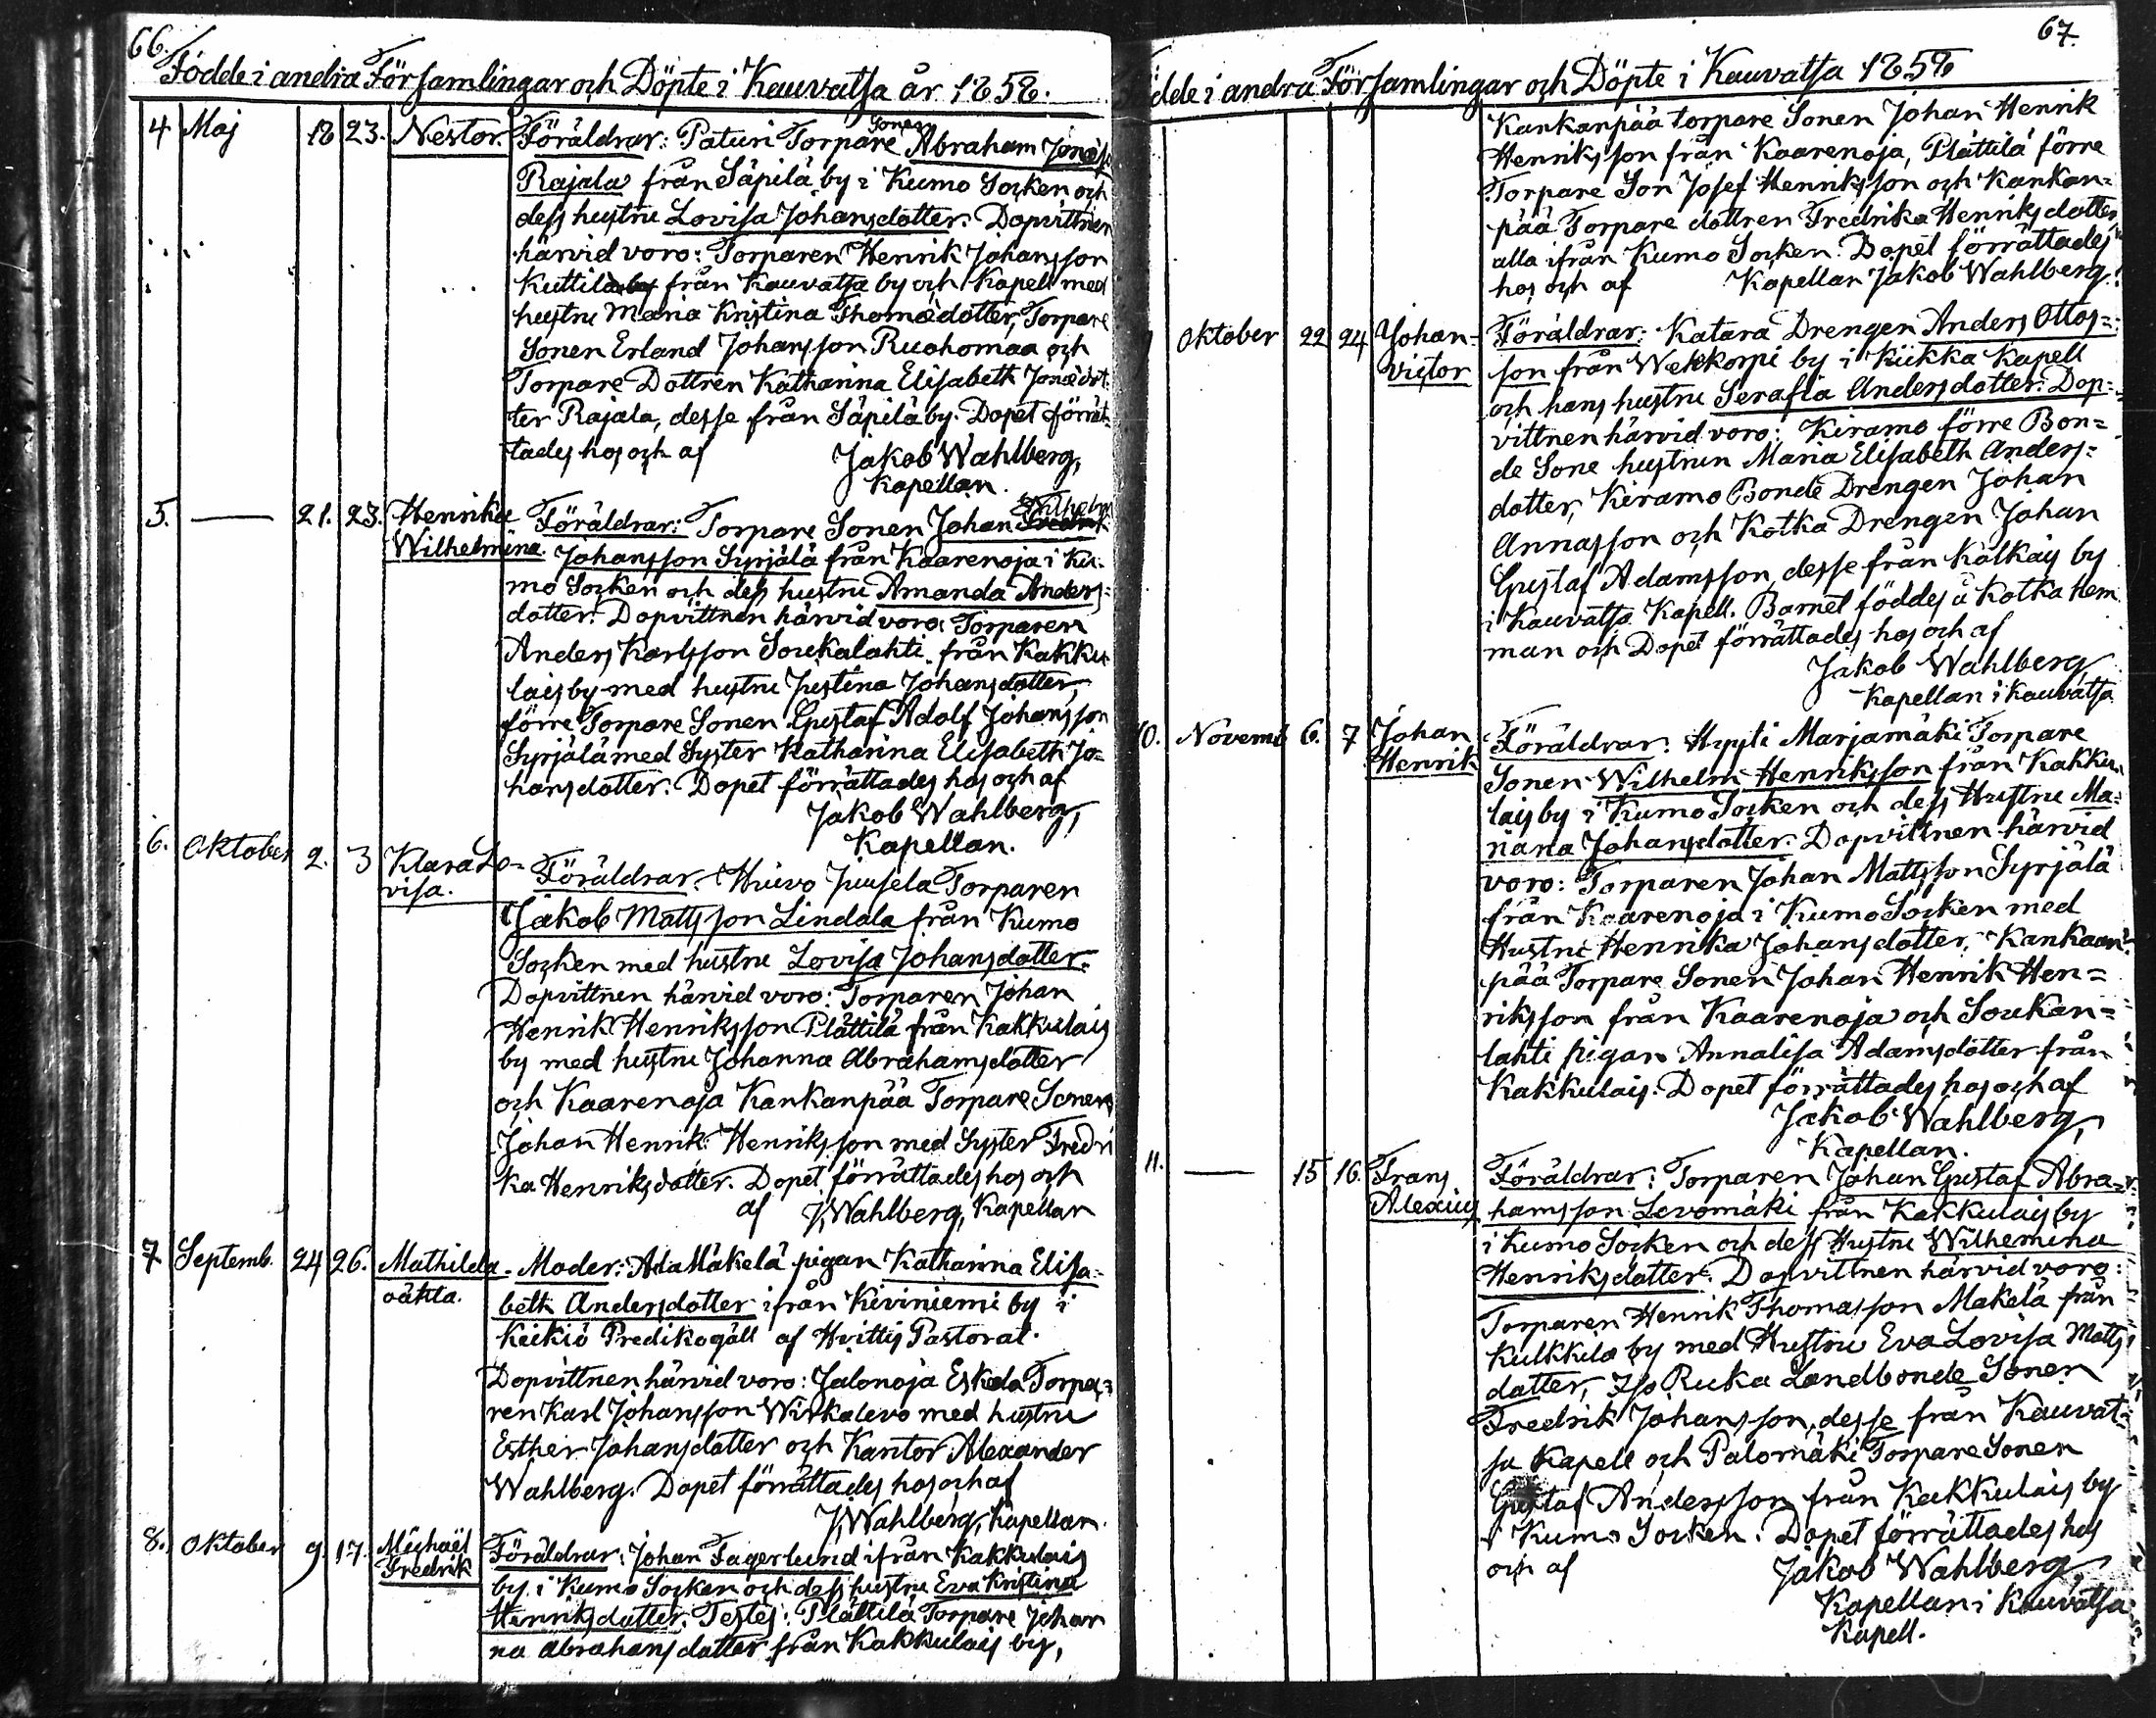 66.
Födde i andra Församlingar och Döpte i Kauvatsa år 1858.
4 Maj 18 23. Nestor. Föräldrar: Paturi Torpare Sonen Abraham Jonæs
Rajala från Säpilä by i Kumo Socken och
dess hustru Lovisa Johansdotter. Dopvittnen
härvid voro: Torparen Henrik Johansson
Kuttila från Kauvatsa by och Kapell med
hustru Maria Kristina Thomædotter, Torpare
Sonen Erland Johansson Ruohomaa och
Torpare Dottren Katharina Elisabeth Jonædot-
ter Rajala, desse från Säpilä by. Dopet förrät-
tades hos och af Jakob Wahlberg,
Kapellan.
5. — 21. 23. Henrika Wilhelmina. Föräldrar: Torpare Sonen Johan Wilhelm
Johansson Syrjälä från Kaarenoja i Ku-
mo Socken och dess hustru Amanda Anders-
dotter. Dopvittnen härvid voro: Torparen
Anders Karlsson Soukalahti från Kakku-
lais by med hustru Justina Johansdotter,
förre Torpare Sonen Gustaf Adolf Johansson
Syrjälä med Syster Katharina Elisabeth Jo-
hansdotter. Dopet förrättades hos och af
Jakob Wahlberg,
Kapellan.
6. Oktober 2. 3 Klara Lo-
visa. Föräldrar. Huivo Juusela Torparen
Jakob Mattsson Lindala från Kumo
Socken med hustru Lovisa Johansdotter.
Dopvittnen härvid voro: Torparen Johan
Henrik Henriksson Plättilä från Kakkulais
by med hustru Johanna Abrahamsdotter
och Kaarenoja Kankanpää Torpare Sonen
Johan Henrik Henriksson med Syster Fredri
ka Henriksdotter. Dopet förrättades hos och
af J. Wahlberg, Kapellan
7 Septemb. 24 26. Mathilda
oäkta. Moder: Ala Mäkelä pigan Katharina Elisa-
beth Andersdotter ifrån Kiviniemi by i
Keikiö Predikogäll af Hvittis Pastorat.
Dopvittnen härvid voro: Jalonoja Eskola Torpa-
ren Karl Johansson Wirkalevo med hustru
Esther Johansdotter och Kantor Alexander
Wahlberg. Dopet förrättades hos och af
J. Wahlberg, Kapellan.
8. Oktober 9. 17. Michaël
Fredrik Föräldrar: Johan Fagerlund ifrån Kakkulais
by i Kumo Socken och dess hustru Eva Kristina
Henriksdotter. Testes: Plättilä Torpare Johan
na Abrahansdotter från Kakkulais by,
67.
Födde i andra Församlingar och Döpte i Kauvatsa 1858
Kankanpää torpare Sonen Johan Henrik
Henriksson från Kaarenoja, Plättilä förre
Torpare Son Josef Henriksson och Kankan-
pää Torpare dottren Fredrika Henriksdotter
alla ifrån Kumo Socken. Dopet förrättades
hos och af Kapellan Jakob Wahlberg.
Oktober 22 24 Johan-
Victor Föräldrar: Katara Drengen Anders Ottos-
son från Wekkorpi by i Kiikka Kapell
och hans hustru Serafia Andersdotter. Dop-
vittnen härvid voro: Kiramo förre Bon-
de Sone hustrun Maria Elisabeth Anders-
dotter, Kiramo Bonde Drengen Johan
Annasson och Kotka Drengen Johan
Gustaf Adamsson, desse från Kälkäis by
i Kauvatsa Kapell. Barnet föddes å Kotka hem
man och Dopet förrättades hos och af
Jakob Wahlberg
Kapellan i Kauvatsa
10. Novemb 6. 7 Johan
Henrik Föräldrar: Hyyti Marjamäki Torpare
Sonen Wilhelm Henriksson från Kakku
lais by i Kumo Socken och dess Hustru Ma-
riana Johansdotter. Dopvittnen härvid
voro: Torparen Johan Mattsson Syrjälä
från Kaarenoja i Kumo Socken med
Hustru Henrika Johansdotter, Kankaan-
pää Torpare Sonen Johan Henrik Hen-
riksson från Kaarenoja och Soukan-
lahti pigan Annalisa Adamsdotter från
Kakkulais. Dopet förrättades hos och af
Jakob Wahlberg,
Kapellan.
11. — 15 16. Frans
Alexius Föräldrar: Torparen Johan Gustaf Abra-
hamsson Levomäki från Kakkulais by
i Kumo Socken och dess Hustru Wilhemina
Henriksdotter. Dopvittnen härvid voro:
Torparen Henrik Thomasson Makelä från
Kulkkila by med Hustru Eva Lovisa Matts
dotter, Iso Ruka Landbonde Sonen
Fredrik Johansson, desse från Kauvat-
sa Kapell och Palomäki Torpare Sonen
Gustaf Andersson från Kakkulais by
i Kumo Socken. Dopet förrättades hos
och af Jakob Wahlberg,
Kapellan i Kauvatsa
Kapell.